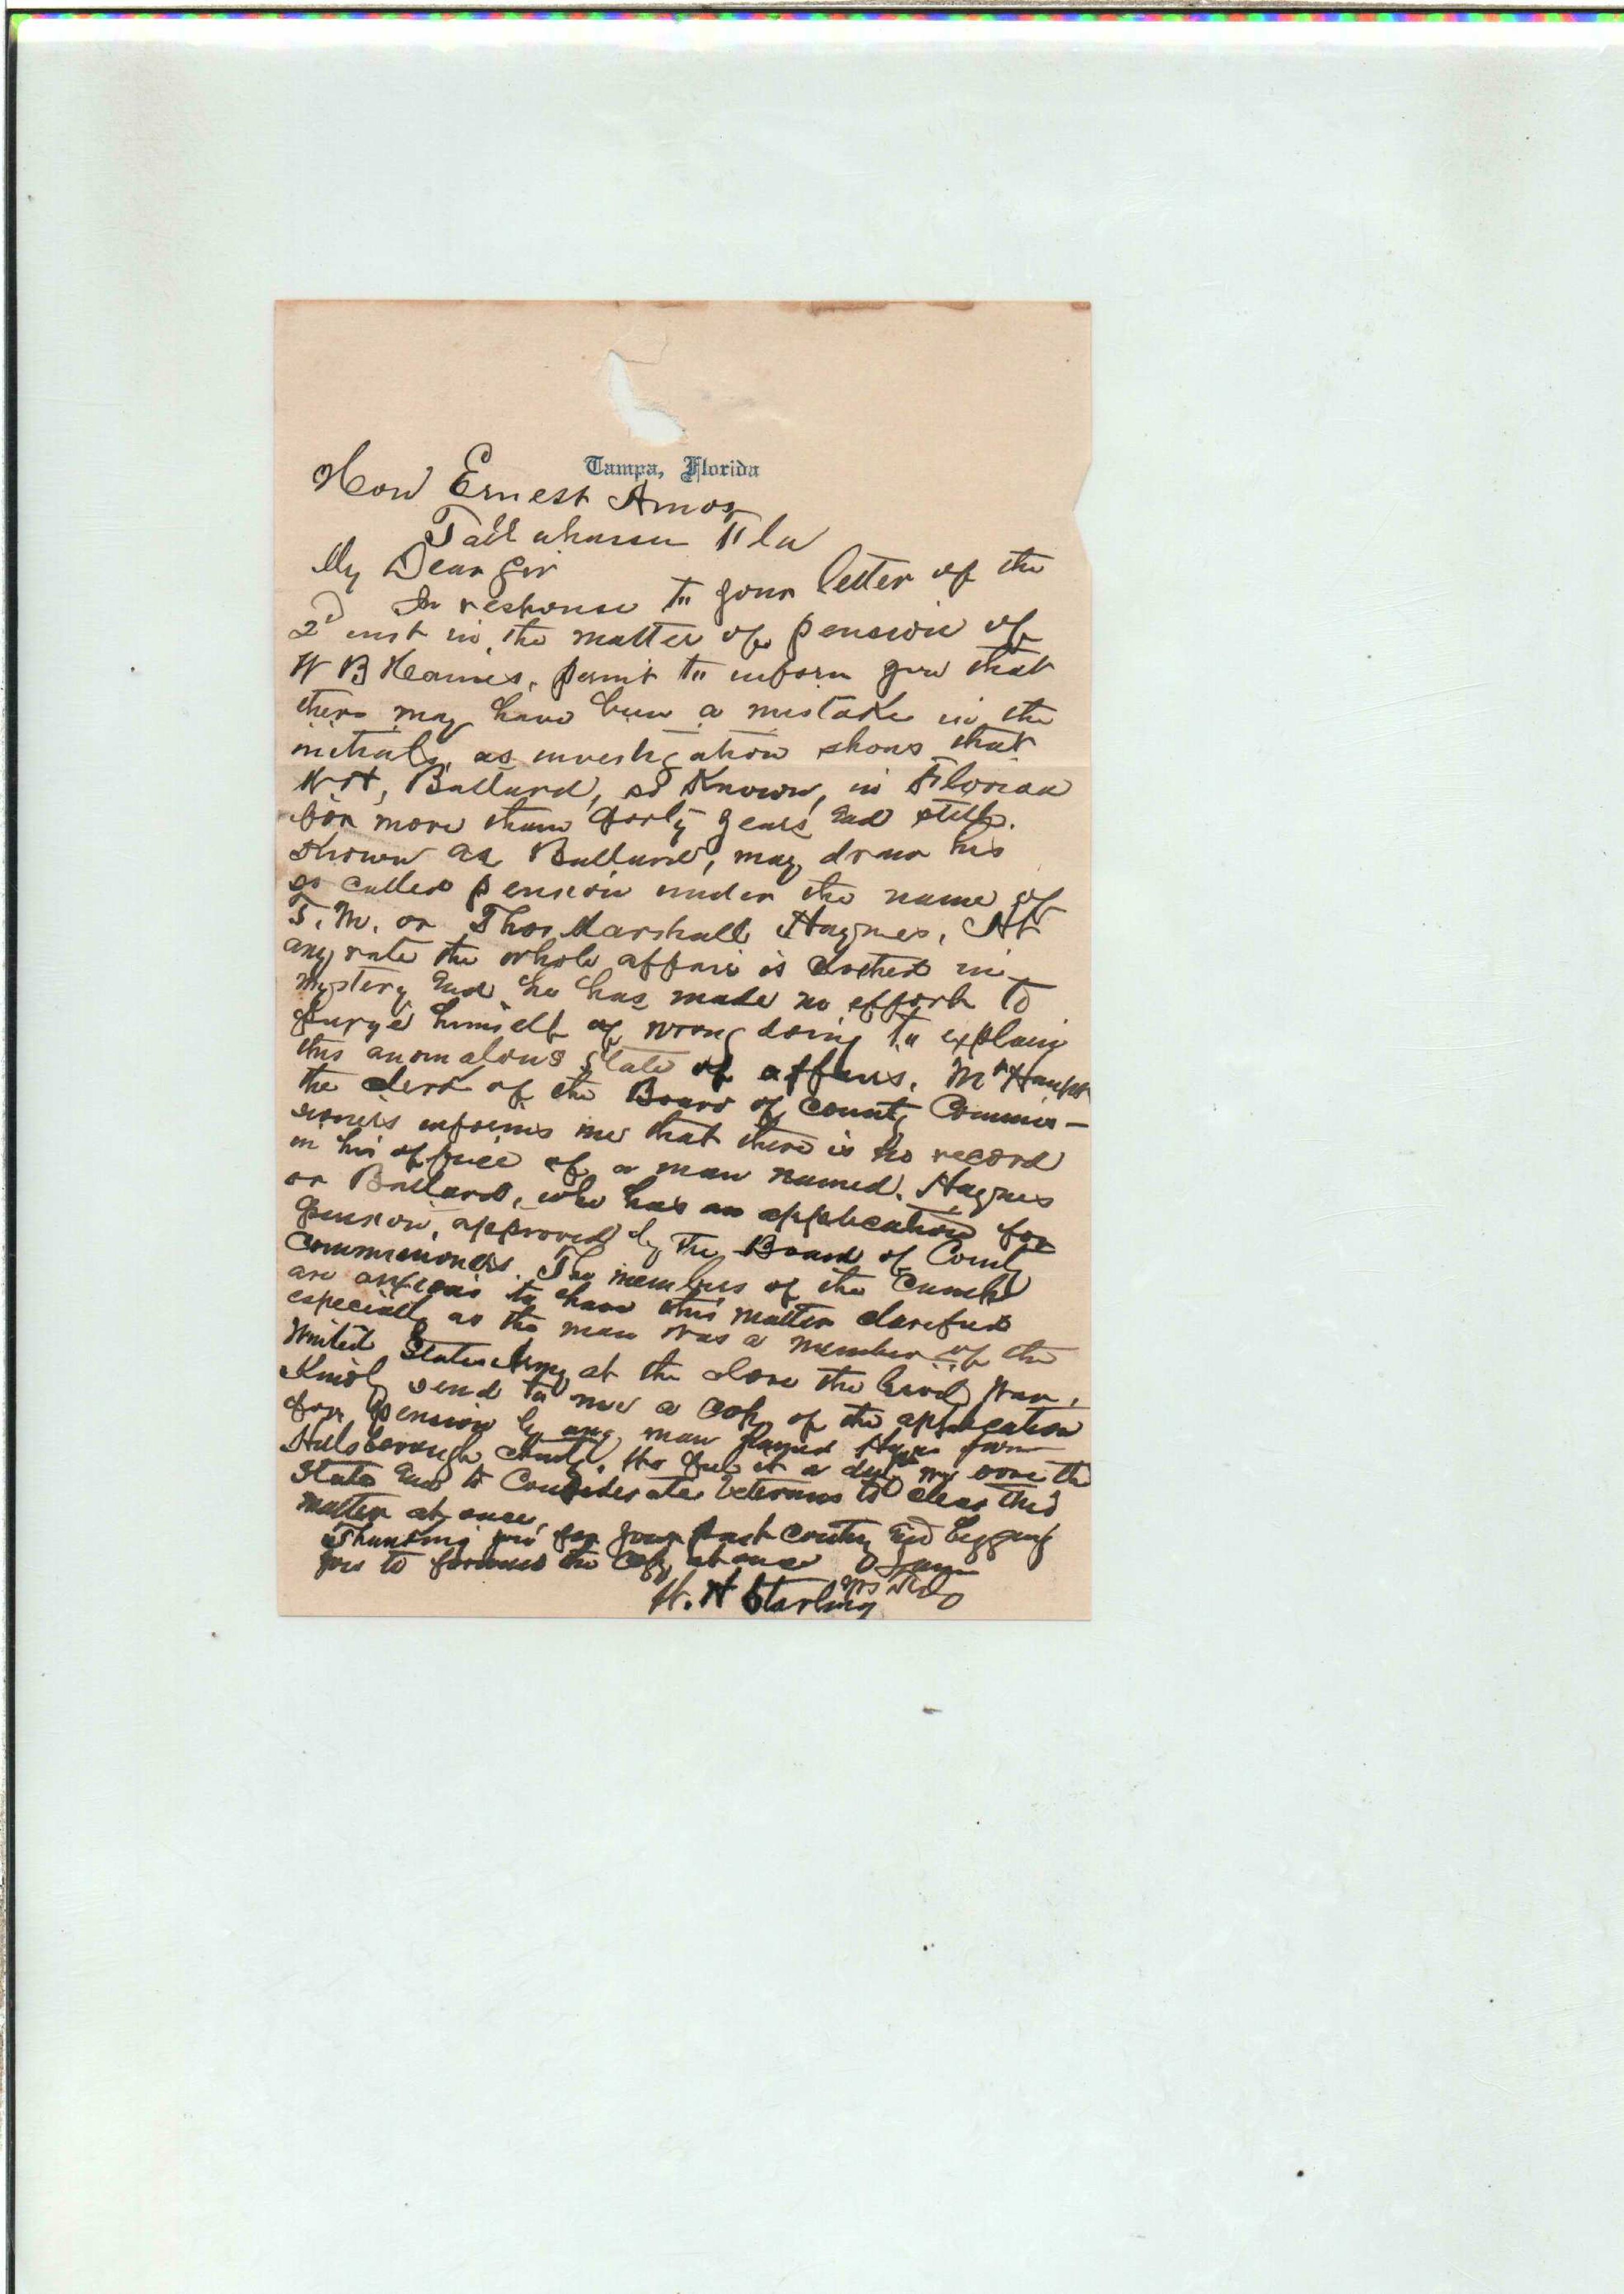 Tampa, Florida
Hon Ernest Amos
Tallahassee Fla
My Dear Sir
In response to your letter of the
2d inst in the matter of pension of
W B Haines, permit to inform you that
there may have been a mistake in the
initials, as investigation shows that
W. H, Ballard, so known, in Florida
for more than forty years and still
known as Ballard, may draw his
so called pension under the name of
T. M. or Thos. Marshall Haynes, At
any rate the whole affair is clothed in
mystery and he has made no effort to
purge himself of wrong doing to explain
this anomalous state of affairs. Mr
the clerk of the Board of County Commis-
sioners informs me that there is no record
in his office of a man named Haynes
or Ballard, who has an application for
pension, approved by the Board of County
Commissioners. The members of the
are anxious to have this matter clarified
especially as the man was a member of the
United States Army at the close the Civil War,
Kindly send to me a copy of the application
for pension by any man named Haynes from
Hillsborough County. We feel it a duty we owe the
State and to Confederate Veterans to clear this
matter at once,
Thanking you for your past courtesy and begging
you to forward the copy at once I am
yrs truly
W. H Starling